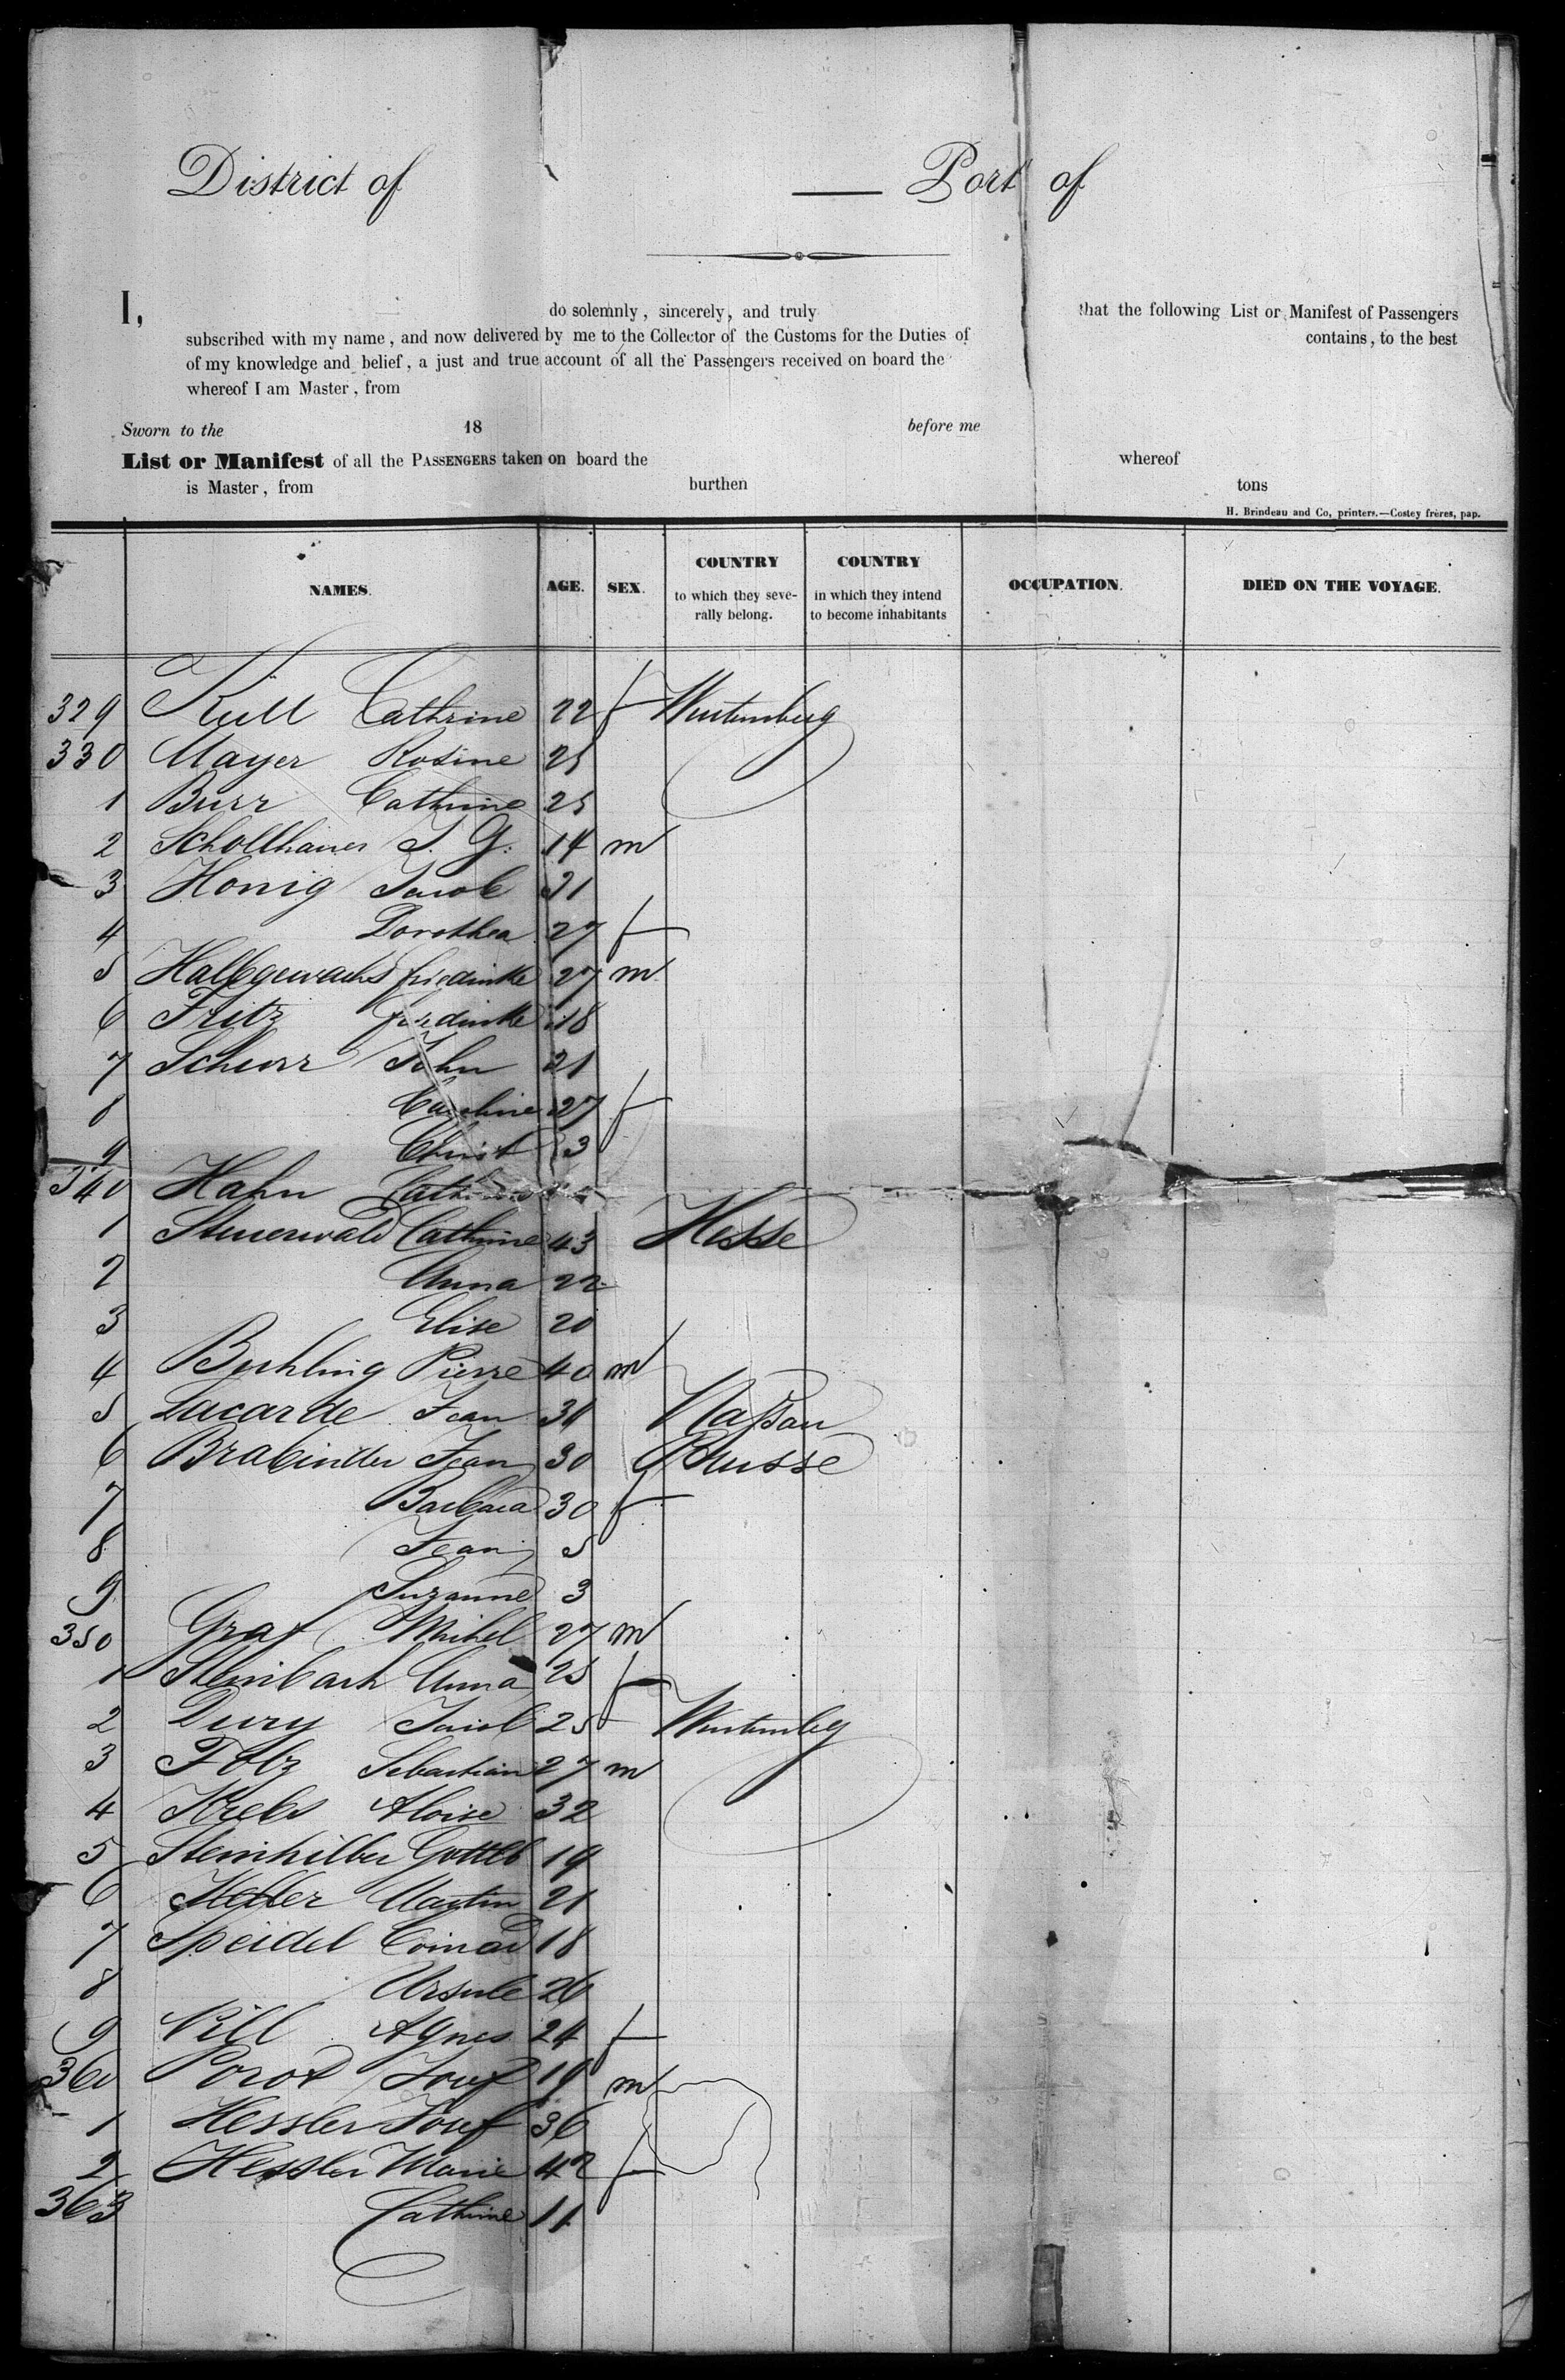 District of — Port of
I, do solemnly, sincerely, and truly that the following List or Manifest of Passengers
subscribed with my name, and now delivered by me to the Collector of the Customs for the Duties of contains, to the best
of my knowledge and belief, a just and true account of all the Passengers received on board the
whereof I am Master, from
Sworn to the 18 before me
List or Manifest of all the PASSENGERS taken on board the whereof
is Master, from burthen tons
H. Brindeau and Co, printers.—Costey frères, pap.
NAMES. AGE. SEX. COUNTRY to which they seve-rally belong. COUNTRY in which they intend to become inhabitants OCCUPATION. DIED ON THE VOYAGE.
329 Küll Cathrine 22 f Wurtemberg
330 Mayer Rosine 25
1 Burr Cathrine 25
2 Schollhauer J. G. 14 m
3 Honig Jacob 31
4 Dorothea 27 f
5 Halbgewachs 27 m
6 Fritz 18
7 Schurr John 21
8 Caroline 27 f
9 Christ 3
340 Hahn Cathrine
1 Steuerwald Cathrine 43 Hesse
2 Anna 22
3 Elise 20
4 Buhling Pierre 40 m
5 Lacarde Jean 31 Nassau
6 Brabinder Jean 30 Prusse
7 Barbara 30 f
8 Jean 5
9 Suzanne 3
350 Graf Michel 27 m
1 Steinbach Anna 25 f
2 Dury Jacob 25 Wurtemberg
3 Folz Sebastian 27 m
4 Krebs Aloise 32
5 Steinhilber Gottlb 19
6 Keller Martin 21
7 Speidel Conrad 18
8 Ursule 26
9 Vill Agnes 24 f
360 Porot Josef 19 m
1 Hessler Josef 36
2 Hessler Marie 42 f
363 Cathrine 11